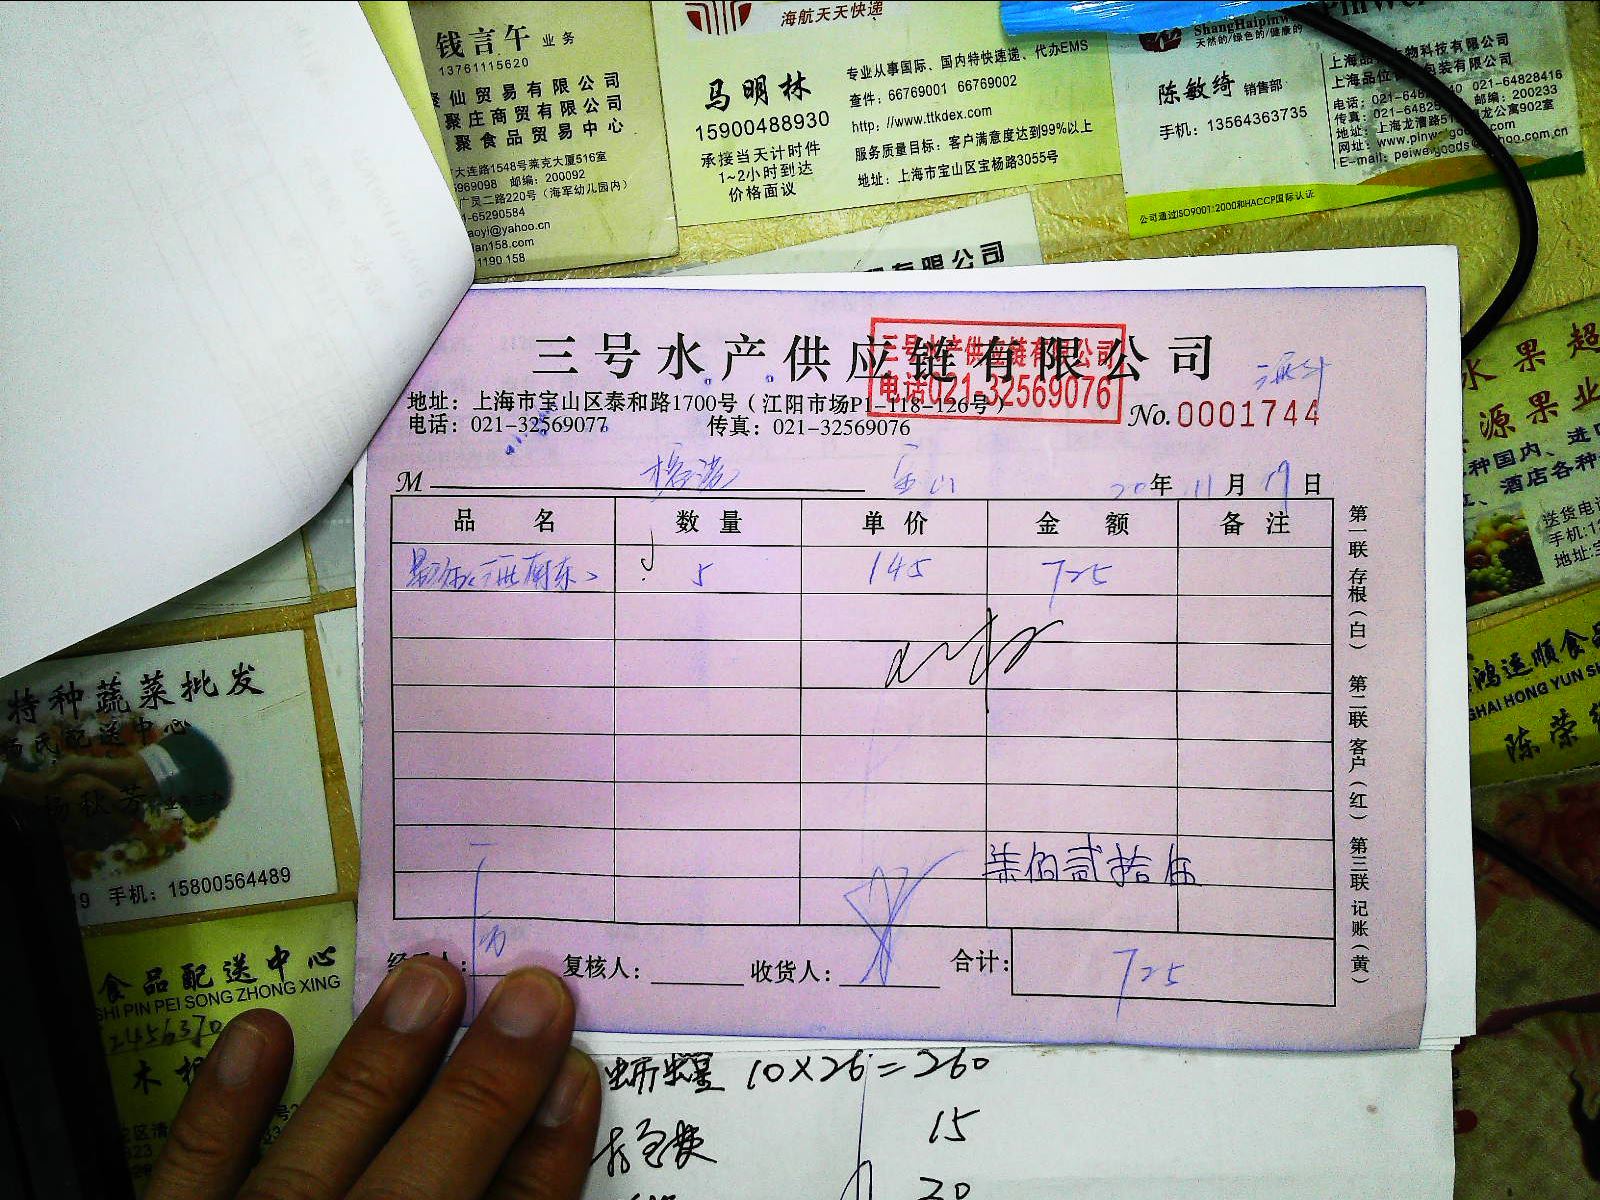 钱言午 业务
13761115620
聚仙贸易有限公司
聚庄商贸有限公司
聚食品贸易中心
大连路1548号莱克大厦516室
5969098 邮编：200092
广灵二路220号（海军幼儿园内）
-65290584
aoyi@yahoo.cn
lan158.com
1190 158
海航天天快递
马明林
15900488930
承接当天计时件
1~2小时到达
价格面议
专业从事国际、国内特快速递、代办EMS
查件：66769001 66769002
http://www.ttkdex.com
服务质量目标：客户满意度达到99%以上
地址：上海市宝山区宝杨路3055号
ShangHaipinw
天然的/绿色的/健康的
陈敏绮 销售部
手机：13564363735
上海品 物科技有限公司
上海品位 包装有限公司
电话：021-648 40 021-64828416
传真：021-6482 邮编：200233
地址：上海龙漕路51 龙公寓902室
网址：www.pinw
E-mail：peiweigoods yahoo.com.cn
公司通过ISO9001:2000和HACCP国际认证
有限公司
三号水产供应链有限公司
三号水产供应链有限公司
电话021-32569076
地址：上海市宝山区泰和路1700号（江阳市场P1-118-126号）
电话：021-32569077 传真：021-32569076
No.0001744
M 宝山 20年11月19日
品名 数量 单价 金额 备注
5 145 725
柒佰贰拾伍
复核人： 收货人： 合计： 725
第一联 存根（白） 第二联 客户（红） 第三联 记账（黄）
10×26=260
15
20
水果超
源果业
种国内、进口
、酒店各种
送货电话
手机：1
地址：宝
鸿运顺食品
GHAI HONG YUN SH
陈荣
特种蔬菜批发
杨氏配送中心
杨秋芳
19 手机：15800564489
食品配送中心
SHI PIN PEI SONG ZHONG XING
2456370
木